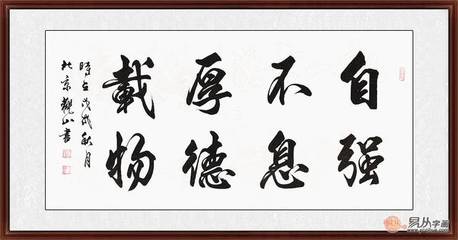 自强
不息
厚德
載物
時在戊戌秋月
北京觀山書
易从字画